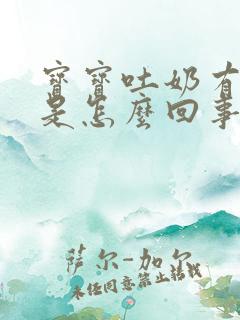 寶寶吐奶有
是怎麼回事
萨尔-加尔
未经同意禁止转载